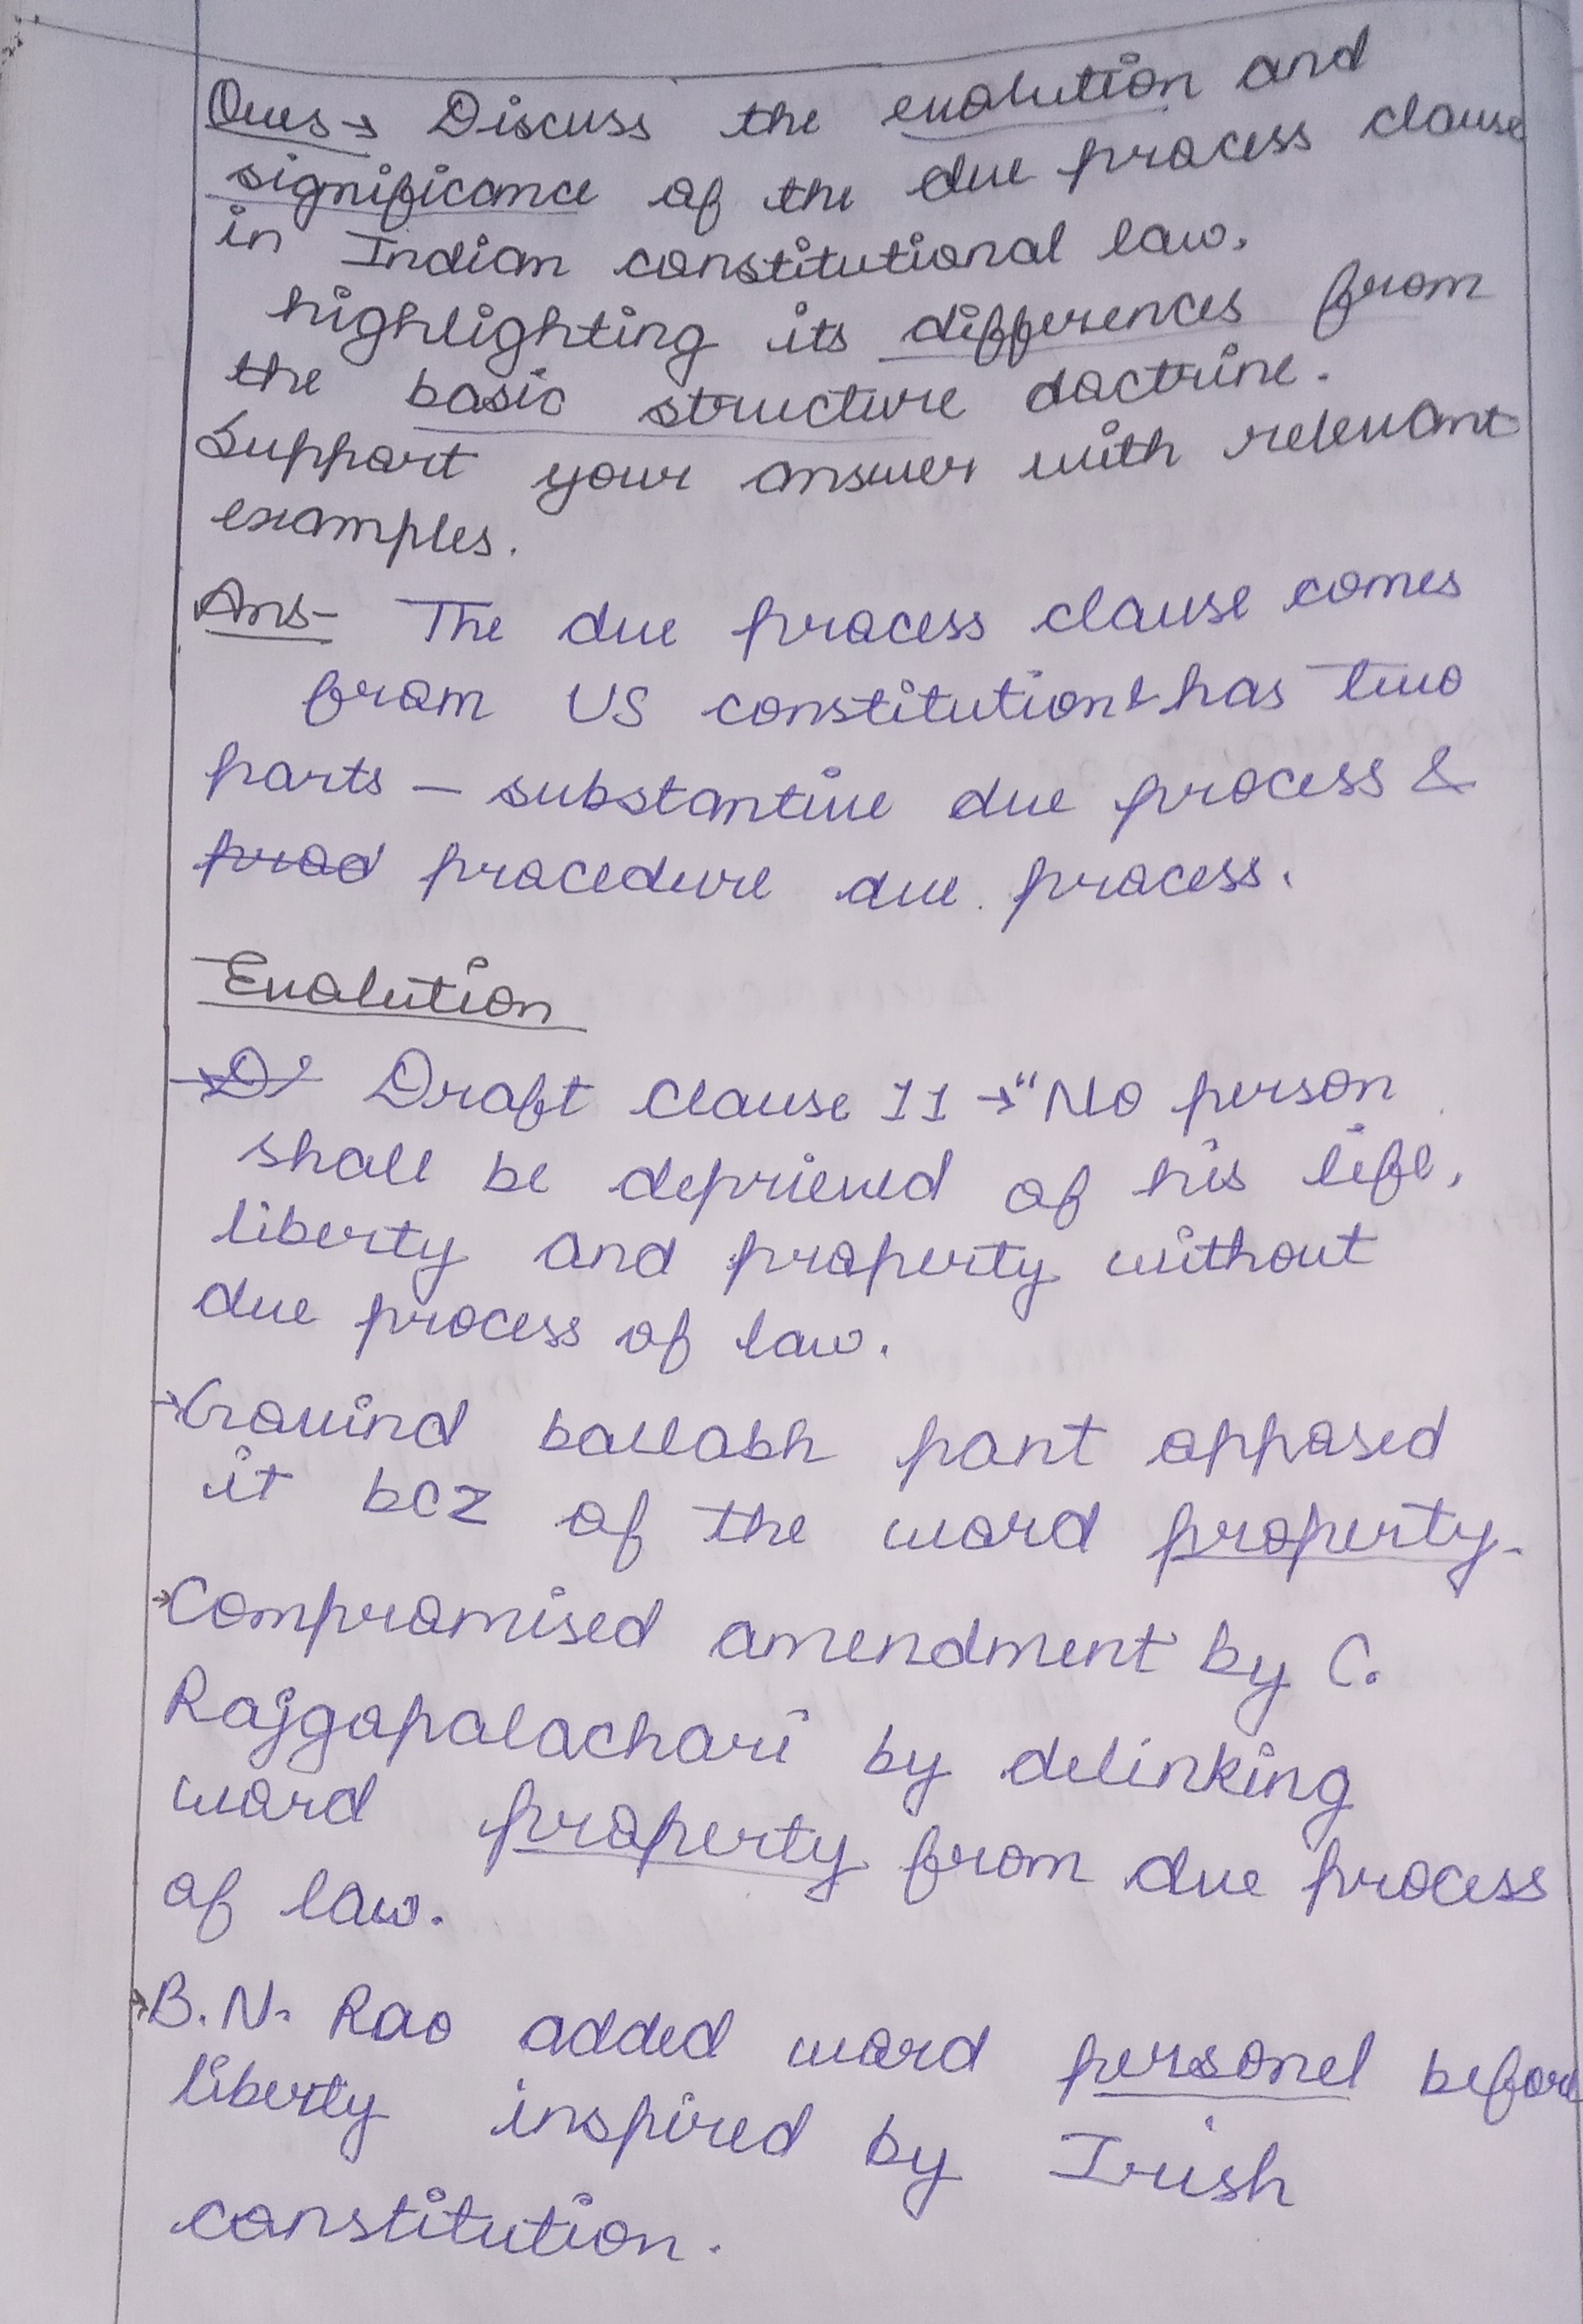 Ques→ Discuss the evolution and
significance of the due process clause
in Indian constitutional law.
highlighting its differences from
the basic structure doctrine.
Support your answer with relevant
examples.
Ans- The due process clause comes
from US constitution & has two
parts - substantive due process &
prod procedure due process.
Evolution
→ D Draft Clause 11 → "No person
shall be deprieved of his life,
liberty and property without
due process of law.
→ Govind ballabh pant opposed
it bcz of the word property.
→ Compromised amendment by C.
Rajgopalachari by delinking
word property from due process
of law.
→ B.N. Rao added word personel before
liberty inspired by Irish
constitution.